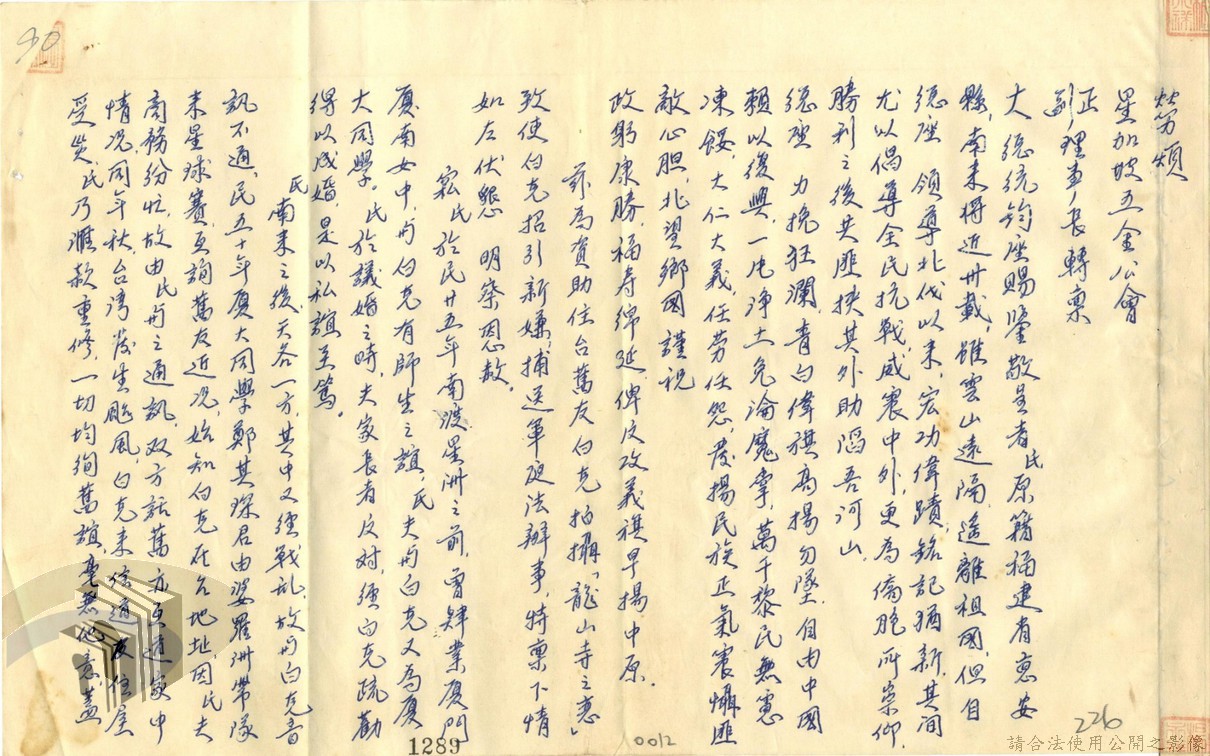 敬勞煩
星加坡五金公會
正副理事長轉稟
大總統鈞座賜鑒敬呈者氏原籍福建省惠安
縣,南來將近卅載,雖雲山遠隔,遙離祖國,但自
總座 領導北伐以來,宏功偉蹟,銘記猶新,其間
尤以倡導全民抗戰,威震中外,更為僑胞所崇仰,
勝利之後共匪挾其外助陷吾河山,
總座 力挽狂瀾,青白偉旗高揚勿墜,自由中國
賴以復興,一片淨土免淪魔掌,萬千黎民無憲
凍餒,大仁大義,任勞任怨,發揚民族正氣震懾匪
敵心胆,北望鄉國謹祝
政躬康勝,福壽綿延俾反攻義旗早揚中原.
茲為資助住台舊友白克拍攝「龍山寺之戀」
致使白克招引新嫌,捕送軍硬法辦事,特稟下情
如左伏懇 明察恩赦。
竊氏於民廿五年南渡星洲之前,曾肄業廈門
廈南女中,與白克有師生之誼,氏夫與白克又為廈
大同學。氏於議婚之時,夫家長者反對,經白克疏勸
得以成婚,是以私誼至篤。
氏南來之後,天各一方,其中又經戰乱,故與白克音
訊不通,民五十年廈大同學鄭其琛君由婆羅洲帶隊
來星球賽,互詢舊友近況,始知白克在台地址,因氏夫
商務紛忙,故由氏與之通訊,双方話舊 亦互道家中
情况,同年秋,台湾發生颱風,白克來信道及住屋
受災,氏乃滙款重修,一切均徇舊誼,毫無他意,蓋
90
1289
0012
226
請合法使用公開之影像